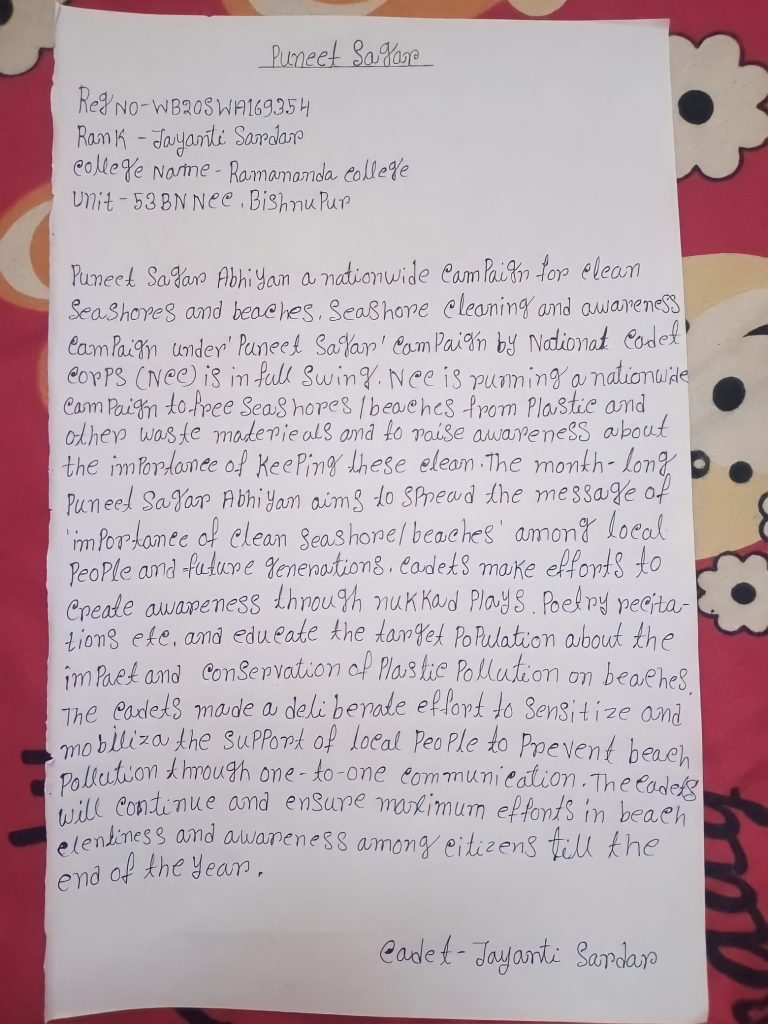 Puneet Sagar
Reg No - WB20SWA169354
Rank - Jayanti Sardar
College Name - Ramananda College
Unit - 53 BN NCC, Bishnupur
Puneet Sagar Abhiyan a nationwide campaign for clean
seashores and beaches. Seashore cleaning and awareness
campaign under 'Puneet Sagar' campaign by National Cadet
Corps (NCC) is in full swing. NCC is running a nationwide
campaign to free seashores / beaches from plastic and
other waste materieals and to raise awareness about
the importance of keeping these clean. The month-long
Puneet Sagar Abhiyan aims to spread the message of
'importance of clean seashore/beaches' among local
people and future generations. Cadets make efforts to
create awareness through nukkad plays, poetry recita-
tions etc. and educate the target population about the
impact and conservation of plastic pollution on beaches.
The cadets made a deliberate effort to sensitize and
mobiliza the support of local people to prevent beach
pollution through one-to-one communication. The cadets
will continue and ensure maximum efforts in beach
clenliness and awareness among citizens till the
end of the year.
Cadet - Jayanti Sardar